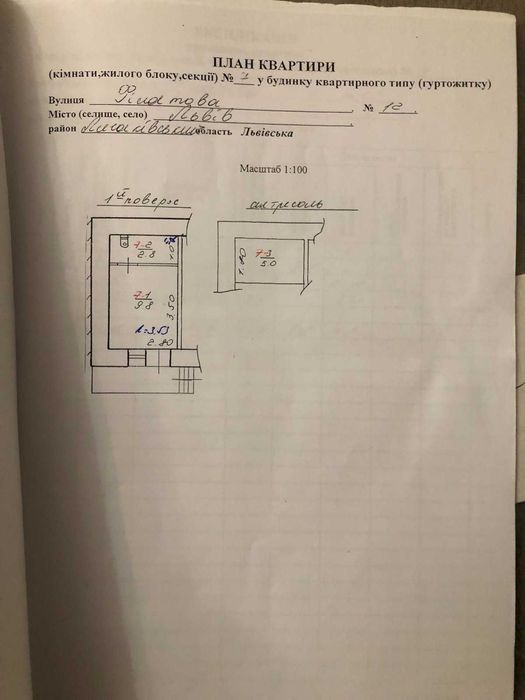 ПЛАН КВАРТИРИ
(кімнати,жилого блоку,секції) № 7 у будинку квартирного типу (гуртожитку)
Вулиця Філатова № 12.
Місто (селище, село) Львів
район Личаківський область Львівська
Масштаб 1:100
1й поверх антресоль
7-2
2.8
7-3
5.0
7-1
9.8
3.50
h=3.53
2.80